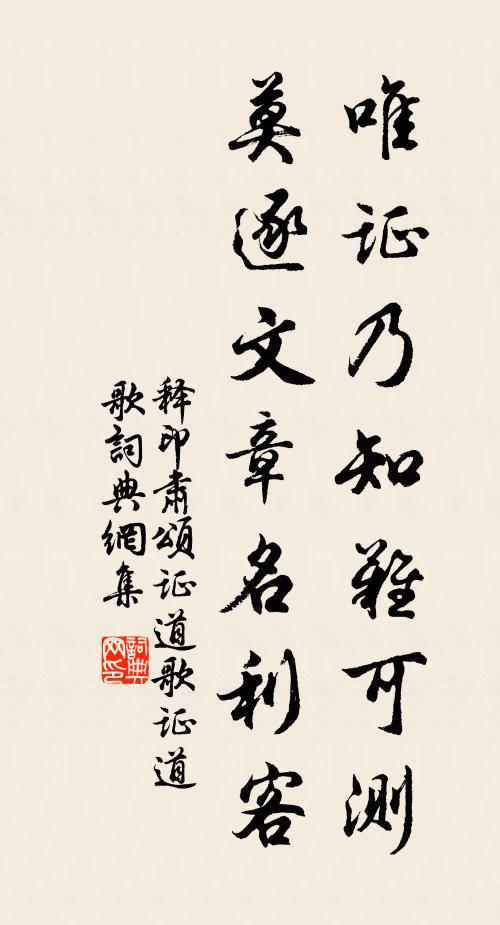 唯证乃知難可測
莫逐文章名利客
释印肃頌证道歌证道
歌詞典網集
詞典网印